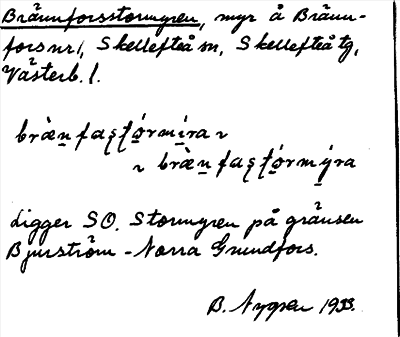 Brännforsstormyren, myr å Bränn-
fors nr 1, Skellefteå sn, Skellefteå tg,
Västerb. l.
Ligger SO. Stormyren på gränsen
Bjurström - Norra Grundfors.
B. Nygren 1933.